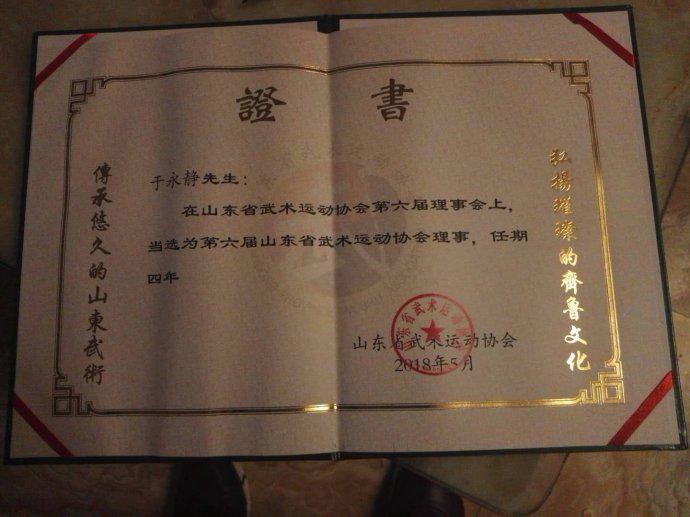 證 書
弘揚璀璨的齊魯文化
傳承悠久的山東武術
于永静先生：
在山东省武术运动协会第六届理事会上，
当选为第六届山东省武术运动协会理事，任期
四年
山东省武术运动协会
2018年5月